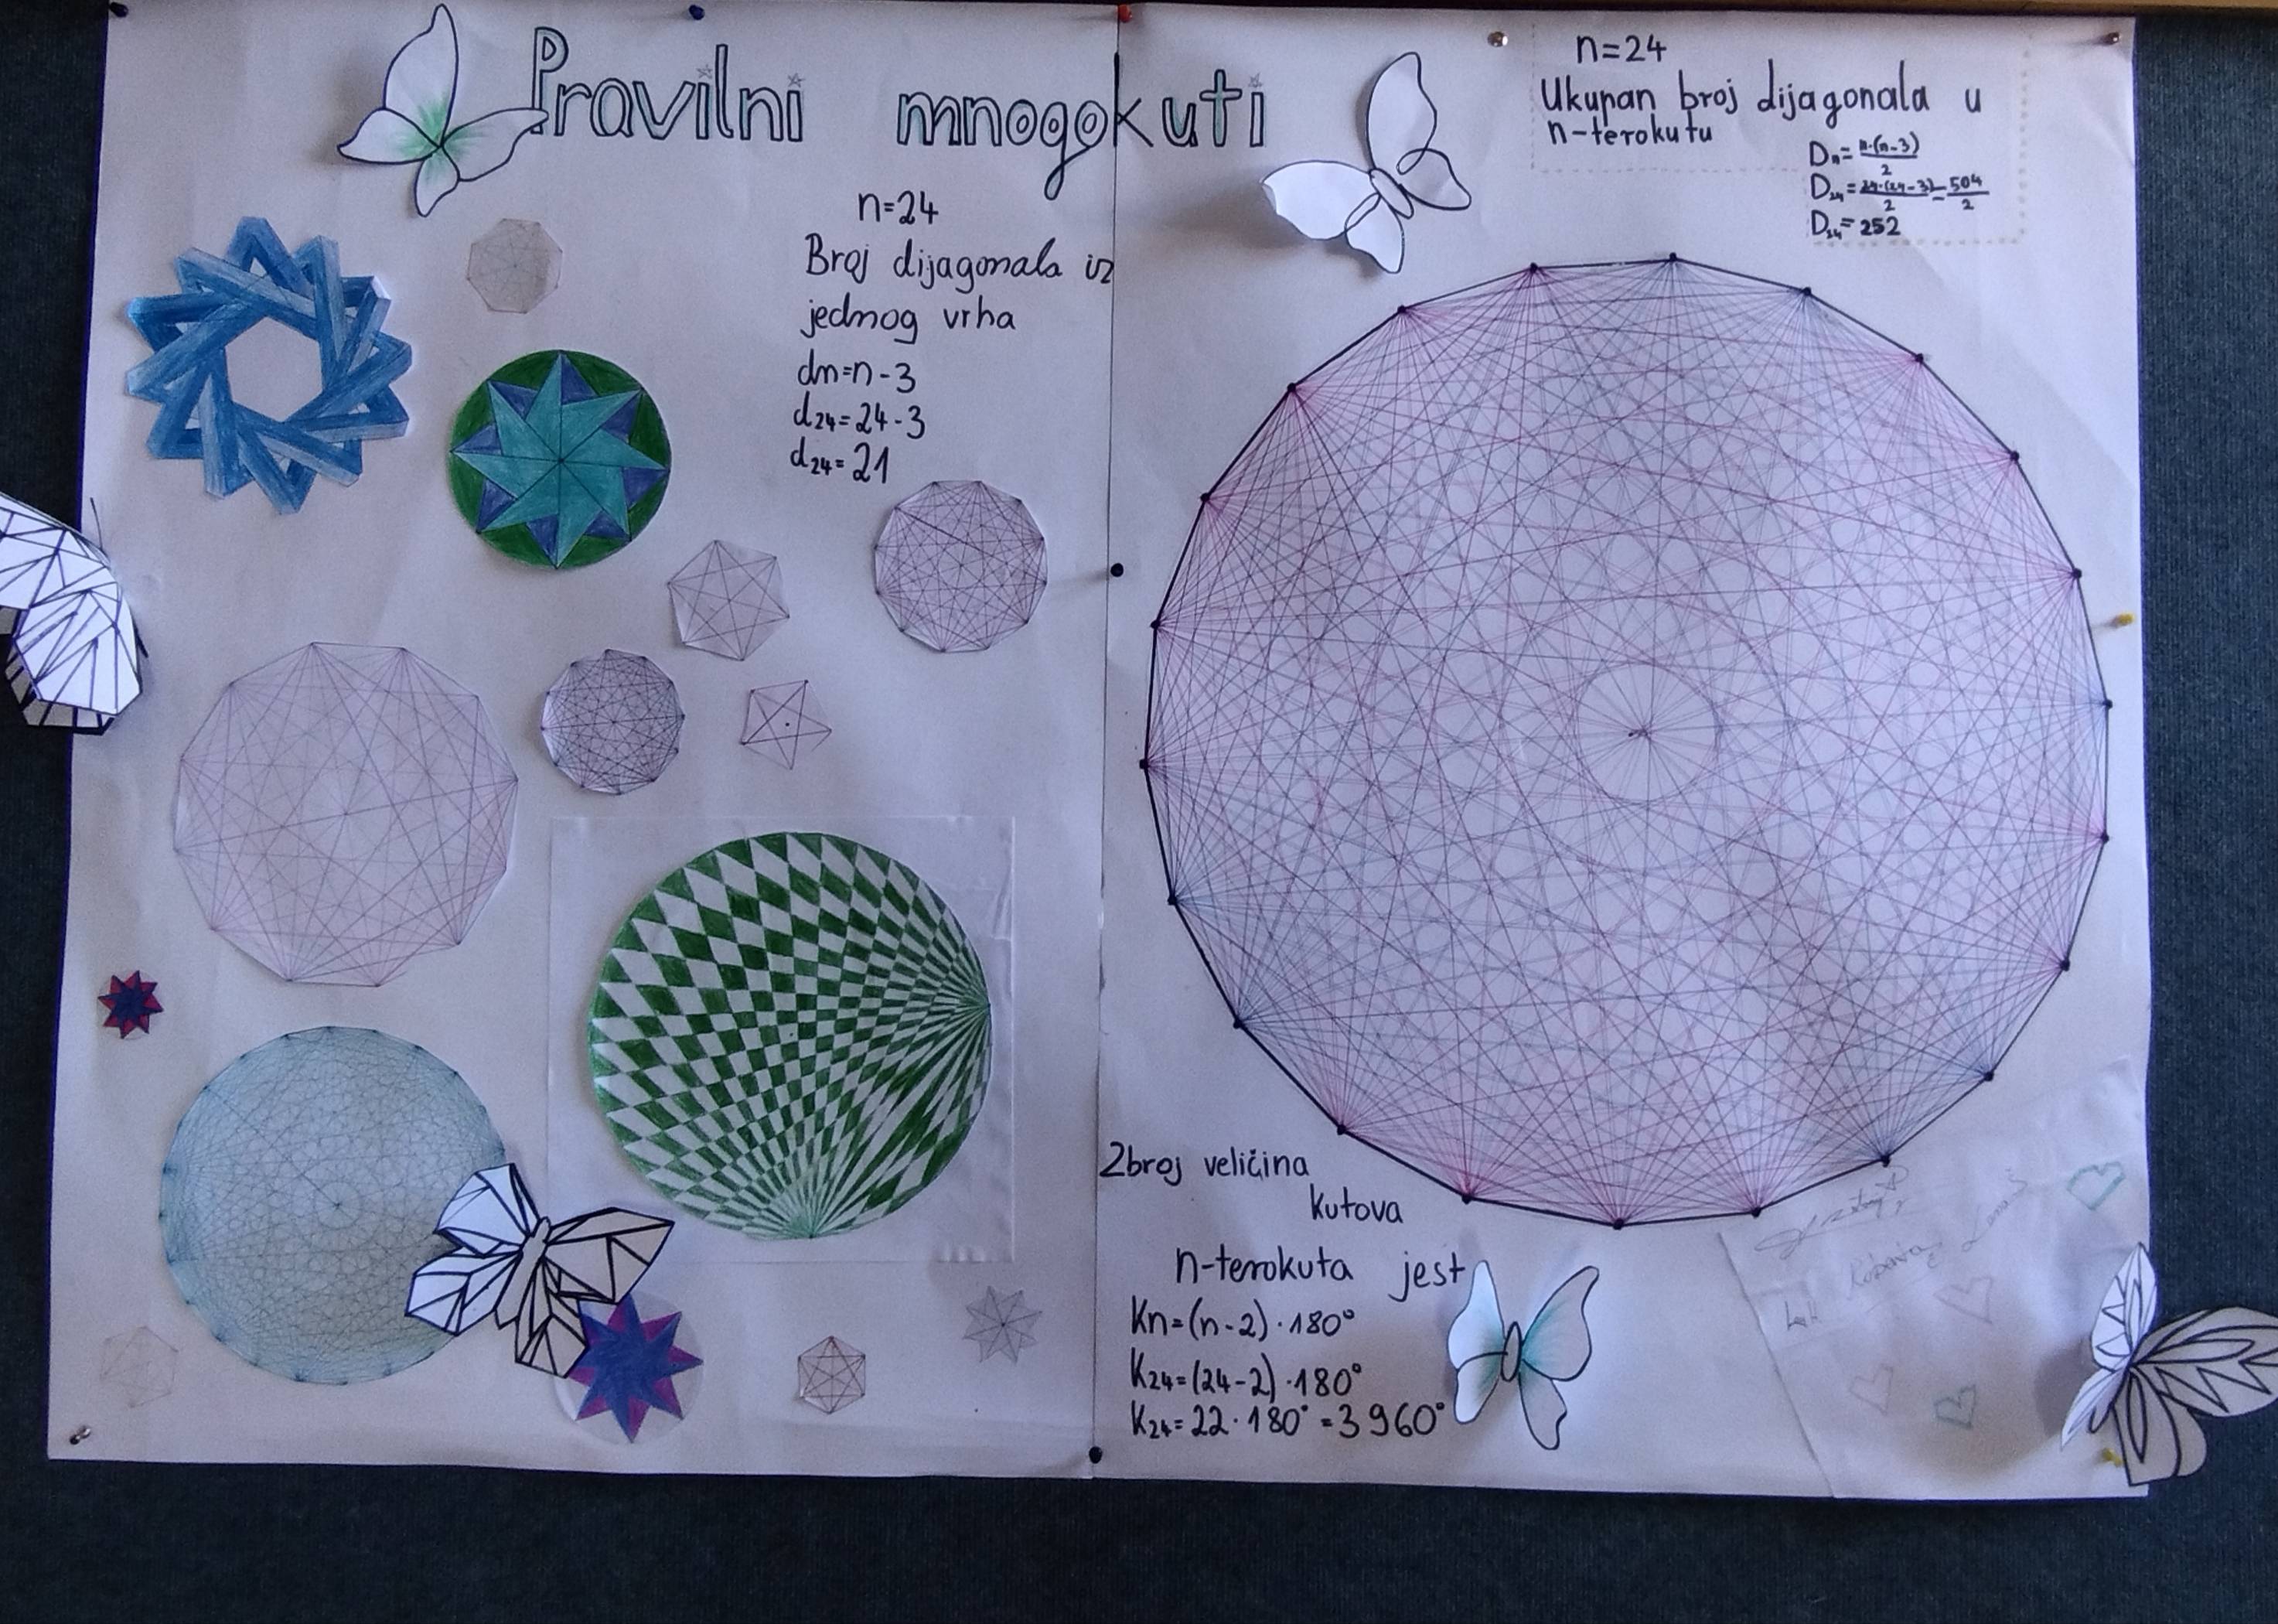 Pravilni mnogokuti
n=24
Broj dijagonala iz
jednog vrha
dn=n-3
d24=24-3
d24=21
n=24
Ukupan broj dijagonala u
n-terokutu
Dn=n·(n-3)/2
D24=24·(24-3)/2=504/2
D24=252
Zbroj veličina
kutova
n-terokuta jest
Kn=(n-2)·180°
K24=(24-2)·180°
K24=22·180°=3960°